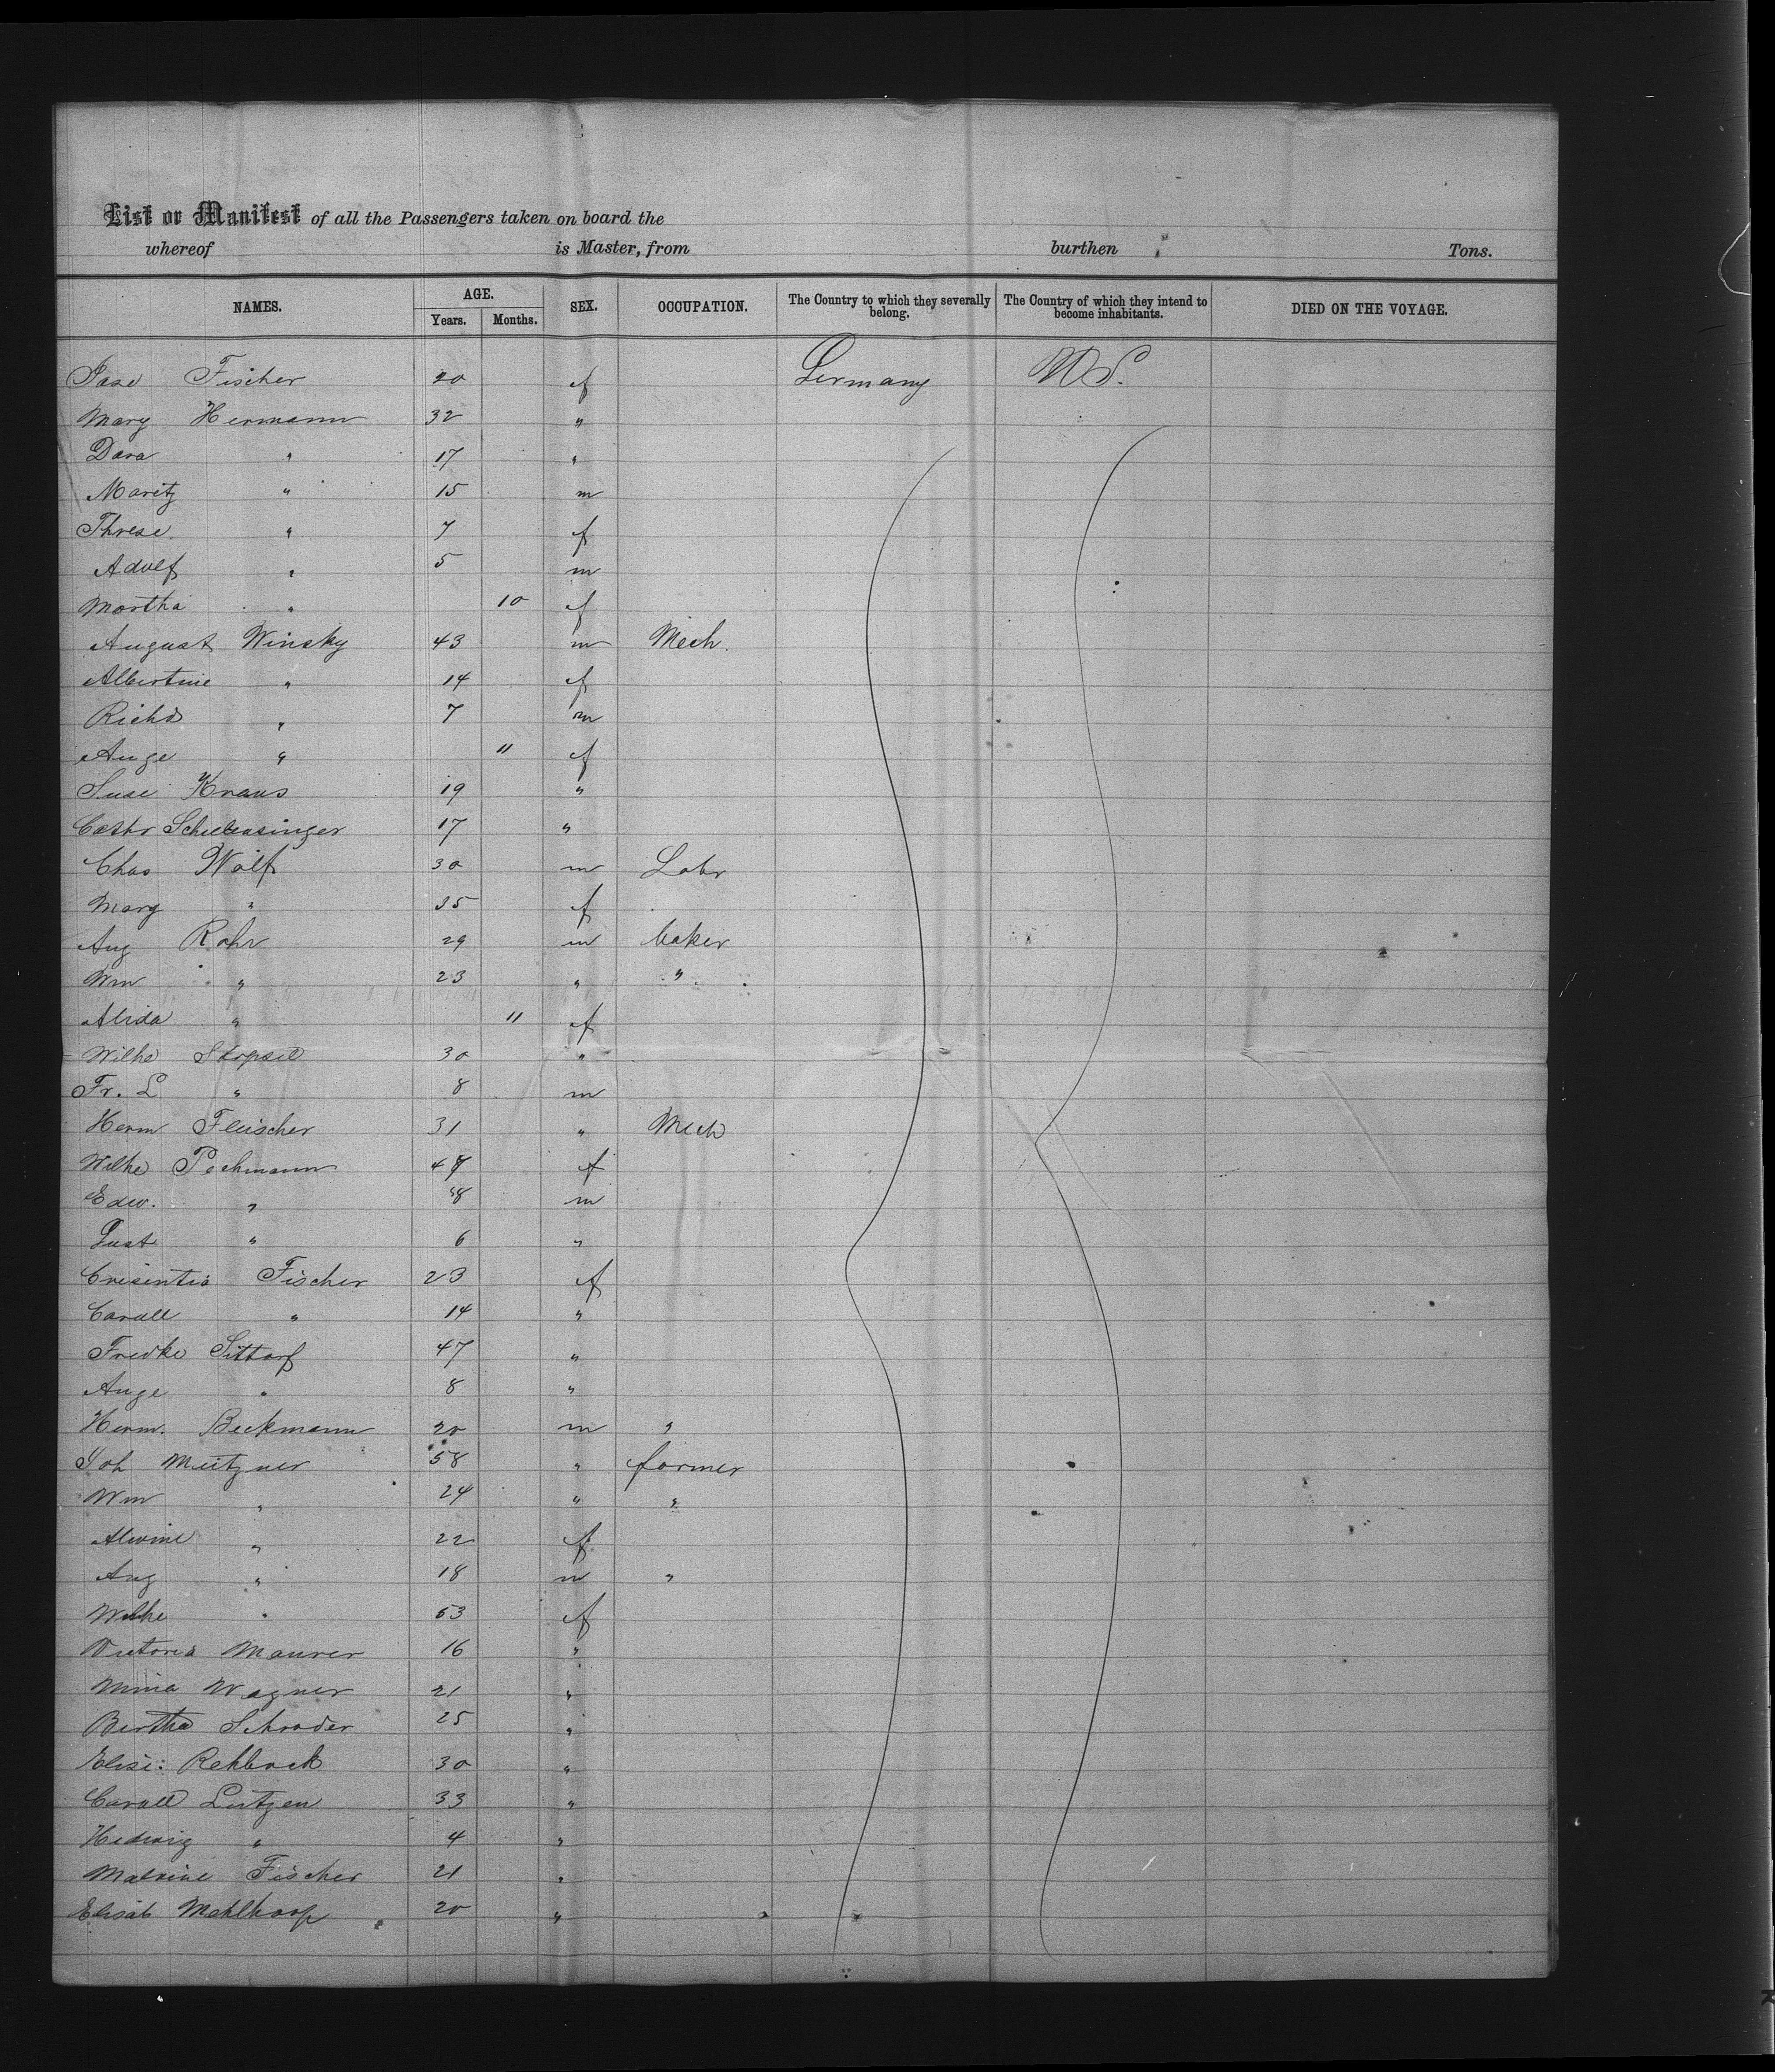 List or Manifest of all the Passengers taken on board the
whereof is Master, from burthen Tons.
NAMES. AGE. Years. Months. SEX. OCCUPATION. The Country to which they severally belong. The Country of which they intend to become inhabitants. DIED ON THE VOYAGE.
Fischer 20 f Germany U S.
Mary Hermann 32 "
Dora " 17 "
Moritz " 15 m
Threse " 7 f
Adolf " 5 m
Martha " 10 f
August Winsky 43 m Mech.
Albertine " 14 f
Richd " 7 m
Auge " 11 f
Suse Kraus 19 "
Cathr 17 "
Chas Wolf 30 m Labr
Marg " 35 f
Aug Rohr 29 m baker
Wm " 23 " "
Alida " 11 f
Wilhe 30 "
Fr. L " 8 m
Herm Fleischer 31 " Mech
Wilhe Pechmann f
Edw. " 8 m
Gust " 6 "
Cresentia Fischer 23 f
Caroll " 14 "
Fredke Sittorf 47 "
Auge " 8 "
Herm. Beckmann 20 m "
Joh Meitzner 58 " farmer
Wm " 24 " "
Alwine " 22 f
Aug " 18 m "
Wilhe " 53 f
Victoria Maurer 16 "
Minna Wagner 21 "
Bertha Schroder 25 "
Elise: Rehbock 30 "
Caroll Lutzen 33 "
Hedwig " 4 "
Malvine Fischer 21 "
Elisab Mehlhoop 20 "